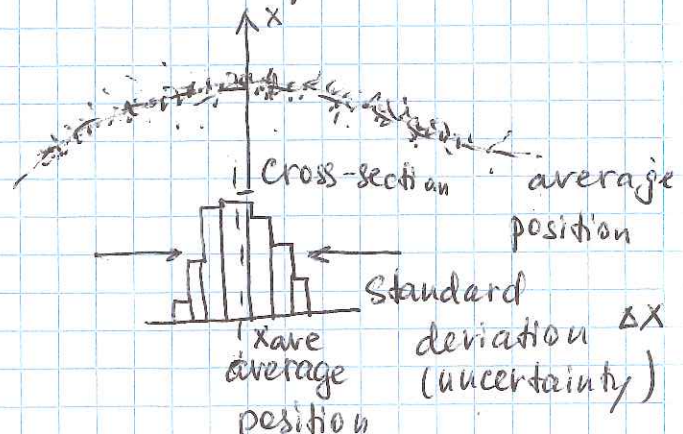 x
Cross-section
average
position
Standard
deviation ΔX
(uncertainty)
Xave
average
position